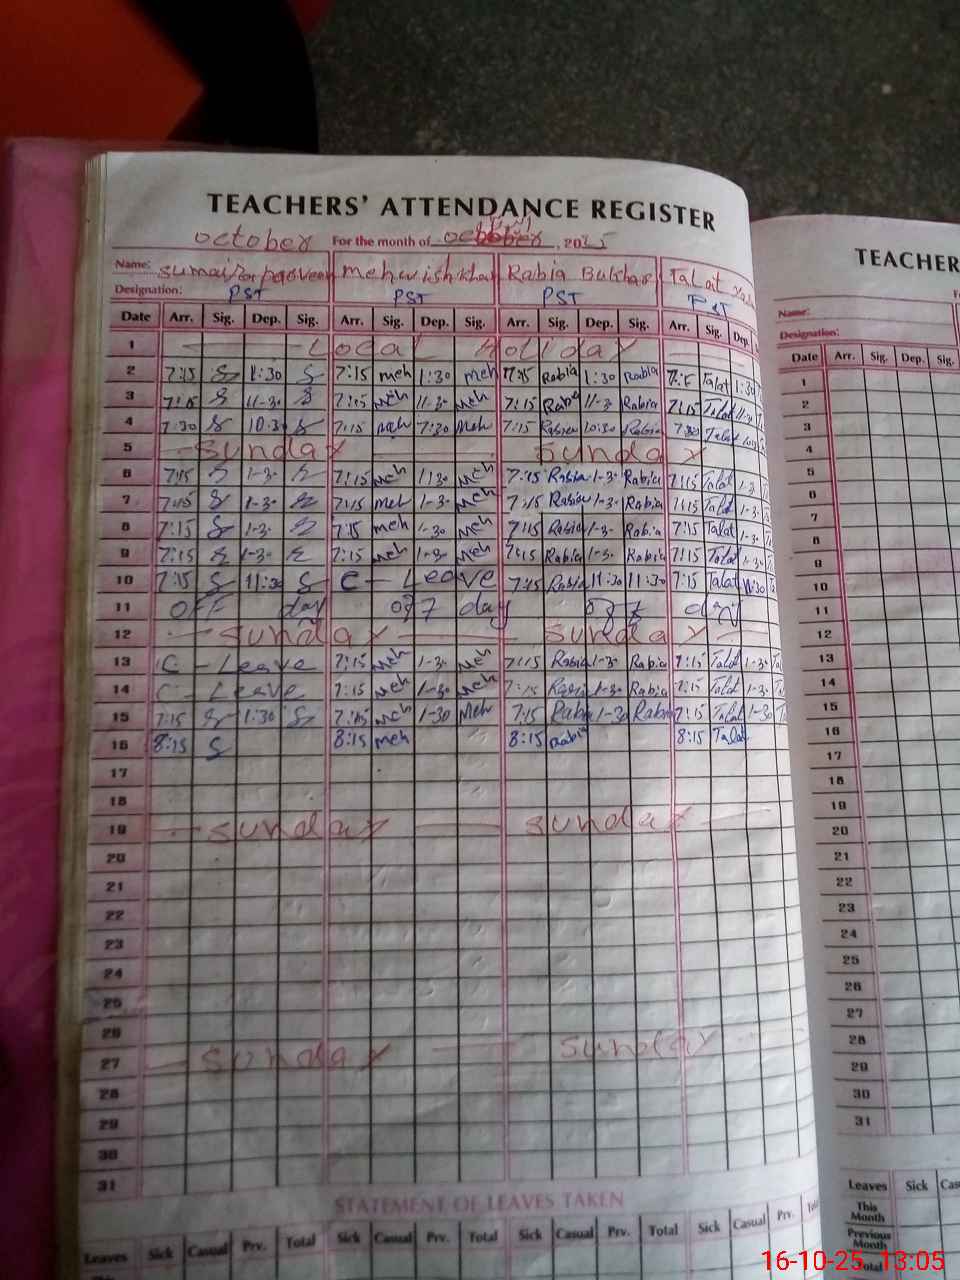 TEACHERS' ATTENDANCE REGISTER
october For the month of october, 2025
Name: Sumaira parveen Mehwish khan Rabia Bukhari Talat
Designation: PST PST PST PST
Date Arr. Sig. Dep. Sig. Arr. Sig. Dep. Sig. Arr. Sig. Dep. Sig. Arr. Sig. Dep.
1 Local Holiday
2 7:15 S 1:30 S 7:15 meh 1:30 meh 7:15 Rabia 1:30 Rabia Talat 1:30
3 7:15 S 11-30 S 7:15 Meh 11-30 Meh 7:15 Rabia 11-30 Rabia 7:15 Talat 11-30
4 7:30 S 10:30 S 7:15 Meh 7:30 Meh 7:15 Rabia 10:30 Rabia 7:30 Talat
5 Sunday Sunday
6 7:15 S 1-30 S 7:15 Meh 1:30 Meh 7:15 Rabia 1-30 Rabia 7:15 Talat 1-30
7 7:15 S 1-30 S 7:15 meh 1-30 Meh 7:15 Rabia 1-30 Rabia 7:15 Talat 1-30
8 7:15 S 1-30 S 7:15 meh 1-30 Meh 7:15 Rabia 1-30 Rabia 7:15 Talat 1-30
9 7:15 S 1-30 S 7:15 meh 1-30 Meh 7:15 Rabia 1-30 Rabia 7:15 Talat 1-30
10 7:15 S 11:30 S C-Leave 7:15 Rabia 11:30 11:30 7:15 Talat 11:30
11 OFF day off day off day
12 Sunday Sunday
13 C-Leave 7:15 Meh 1-30 Meh 7:15 Rabia 1-30 Rabia 7:15 Talat 1-30
14 C-Leave 7:15 Meh 1-30 Meh 7:15 Rabia 1-30 Rabia 7:15 Talat 1-30
15 7:15 S 1:30 S 7:15 Meh 1-30 Meh 7:15 Rabia 1-30 Rabia 7:15 Talat 1-30
16 8:15 S 8:15 meh 8:15 Rabia 8:15 Talat
17
18
19 Sunday Sunday
20
21
22
23
24
25
26
27 Sunday Sunday
28
29
30
31
STATEMENT OF LEAVES TAKEN
Leaves Sick Casual Prv. Total Sick Casual Prv. Total Sick Casual Prv. Total Sick Casual Prv.
TEACHER
Name:
Designation:
Date Arr. Sig. Dep. Sig.
1
2
3
4
5
6
7
8
9
10
11
12
13
14
15
16
17
18
19
20
21
22
23
24
25
26
27
28
29
30
31
Leaves Sick
This Month
Previous Month
Total
16-10-25 13:05